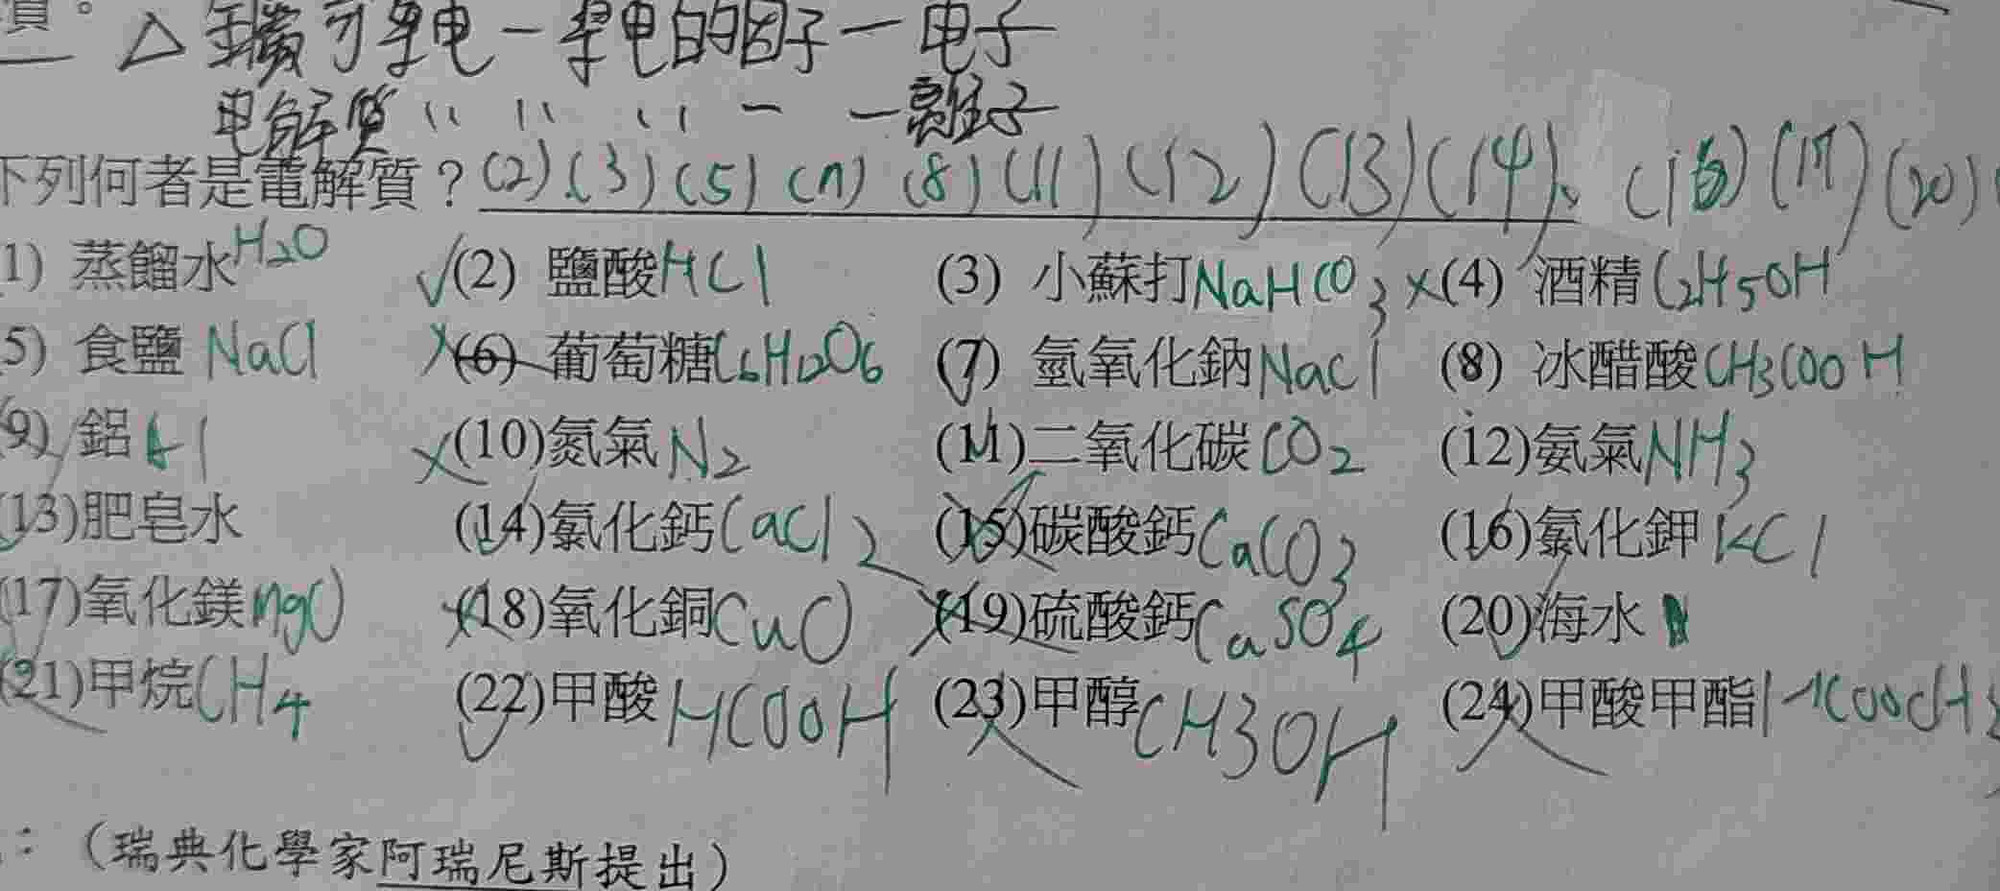 質。 △ 鑛可導电一導电的因子一电子
电解質〃 〃 〃 一 一離子
下列何者是電解質？(2)、(3)(5)(7)(8)(11)(12)(13)(14)、(16)(17)(20)
(1) 蒸餾水H2O √(2) 鹽酸HCl (3) 小蘇打NaHCO3 ×(4) 酒精C2H5OH
(5) 食鹽 NaCl ×(6) 葡萄糖C6H12O6 (7) 氫氧化鈉NaCl (8) 冰醋酸CH3COOH
(9) 鋁Al ×(10)氮氣N2 (11)二氧化碳CO2 (12)氨氣NH3
(13)肥皂水 (14)氯化鈣CaCl2 (15)碳酸鈣CaCO3 (16)氯化鉀KCl
(17)氧化鎂MgO ×(18)氧化銅CuO ×(19)硫酸鈣CaSO4 (20)海水
(21)甲烷CH4 (22)甲酸HCOOH (23)甲醇CH3OH (24)甲酸甲酯HCOOCH3
：（瑞典化學家阿瑞尼斯提出）